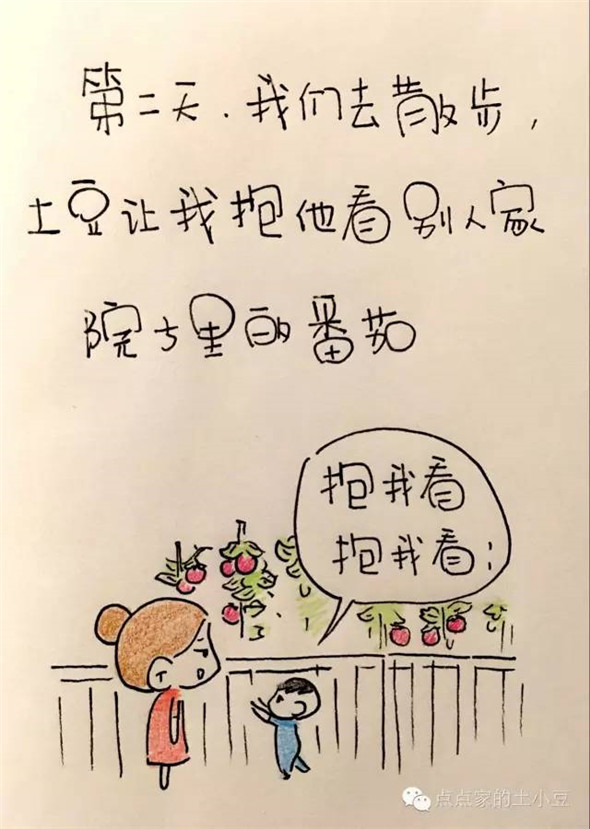 第二天.我们去散步,
土豆让我抱他看别人家
院子里的番茄
抱我看
抱我看;
点点家的土小豆